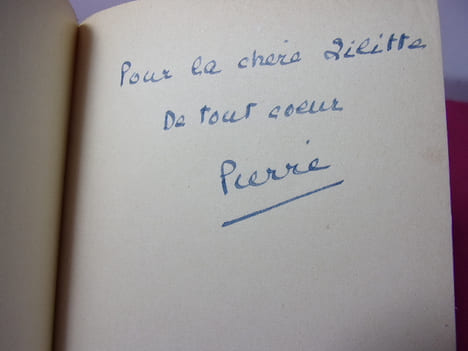 Pour la chere Lilitte
De tout coeur
Pierre